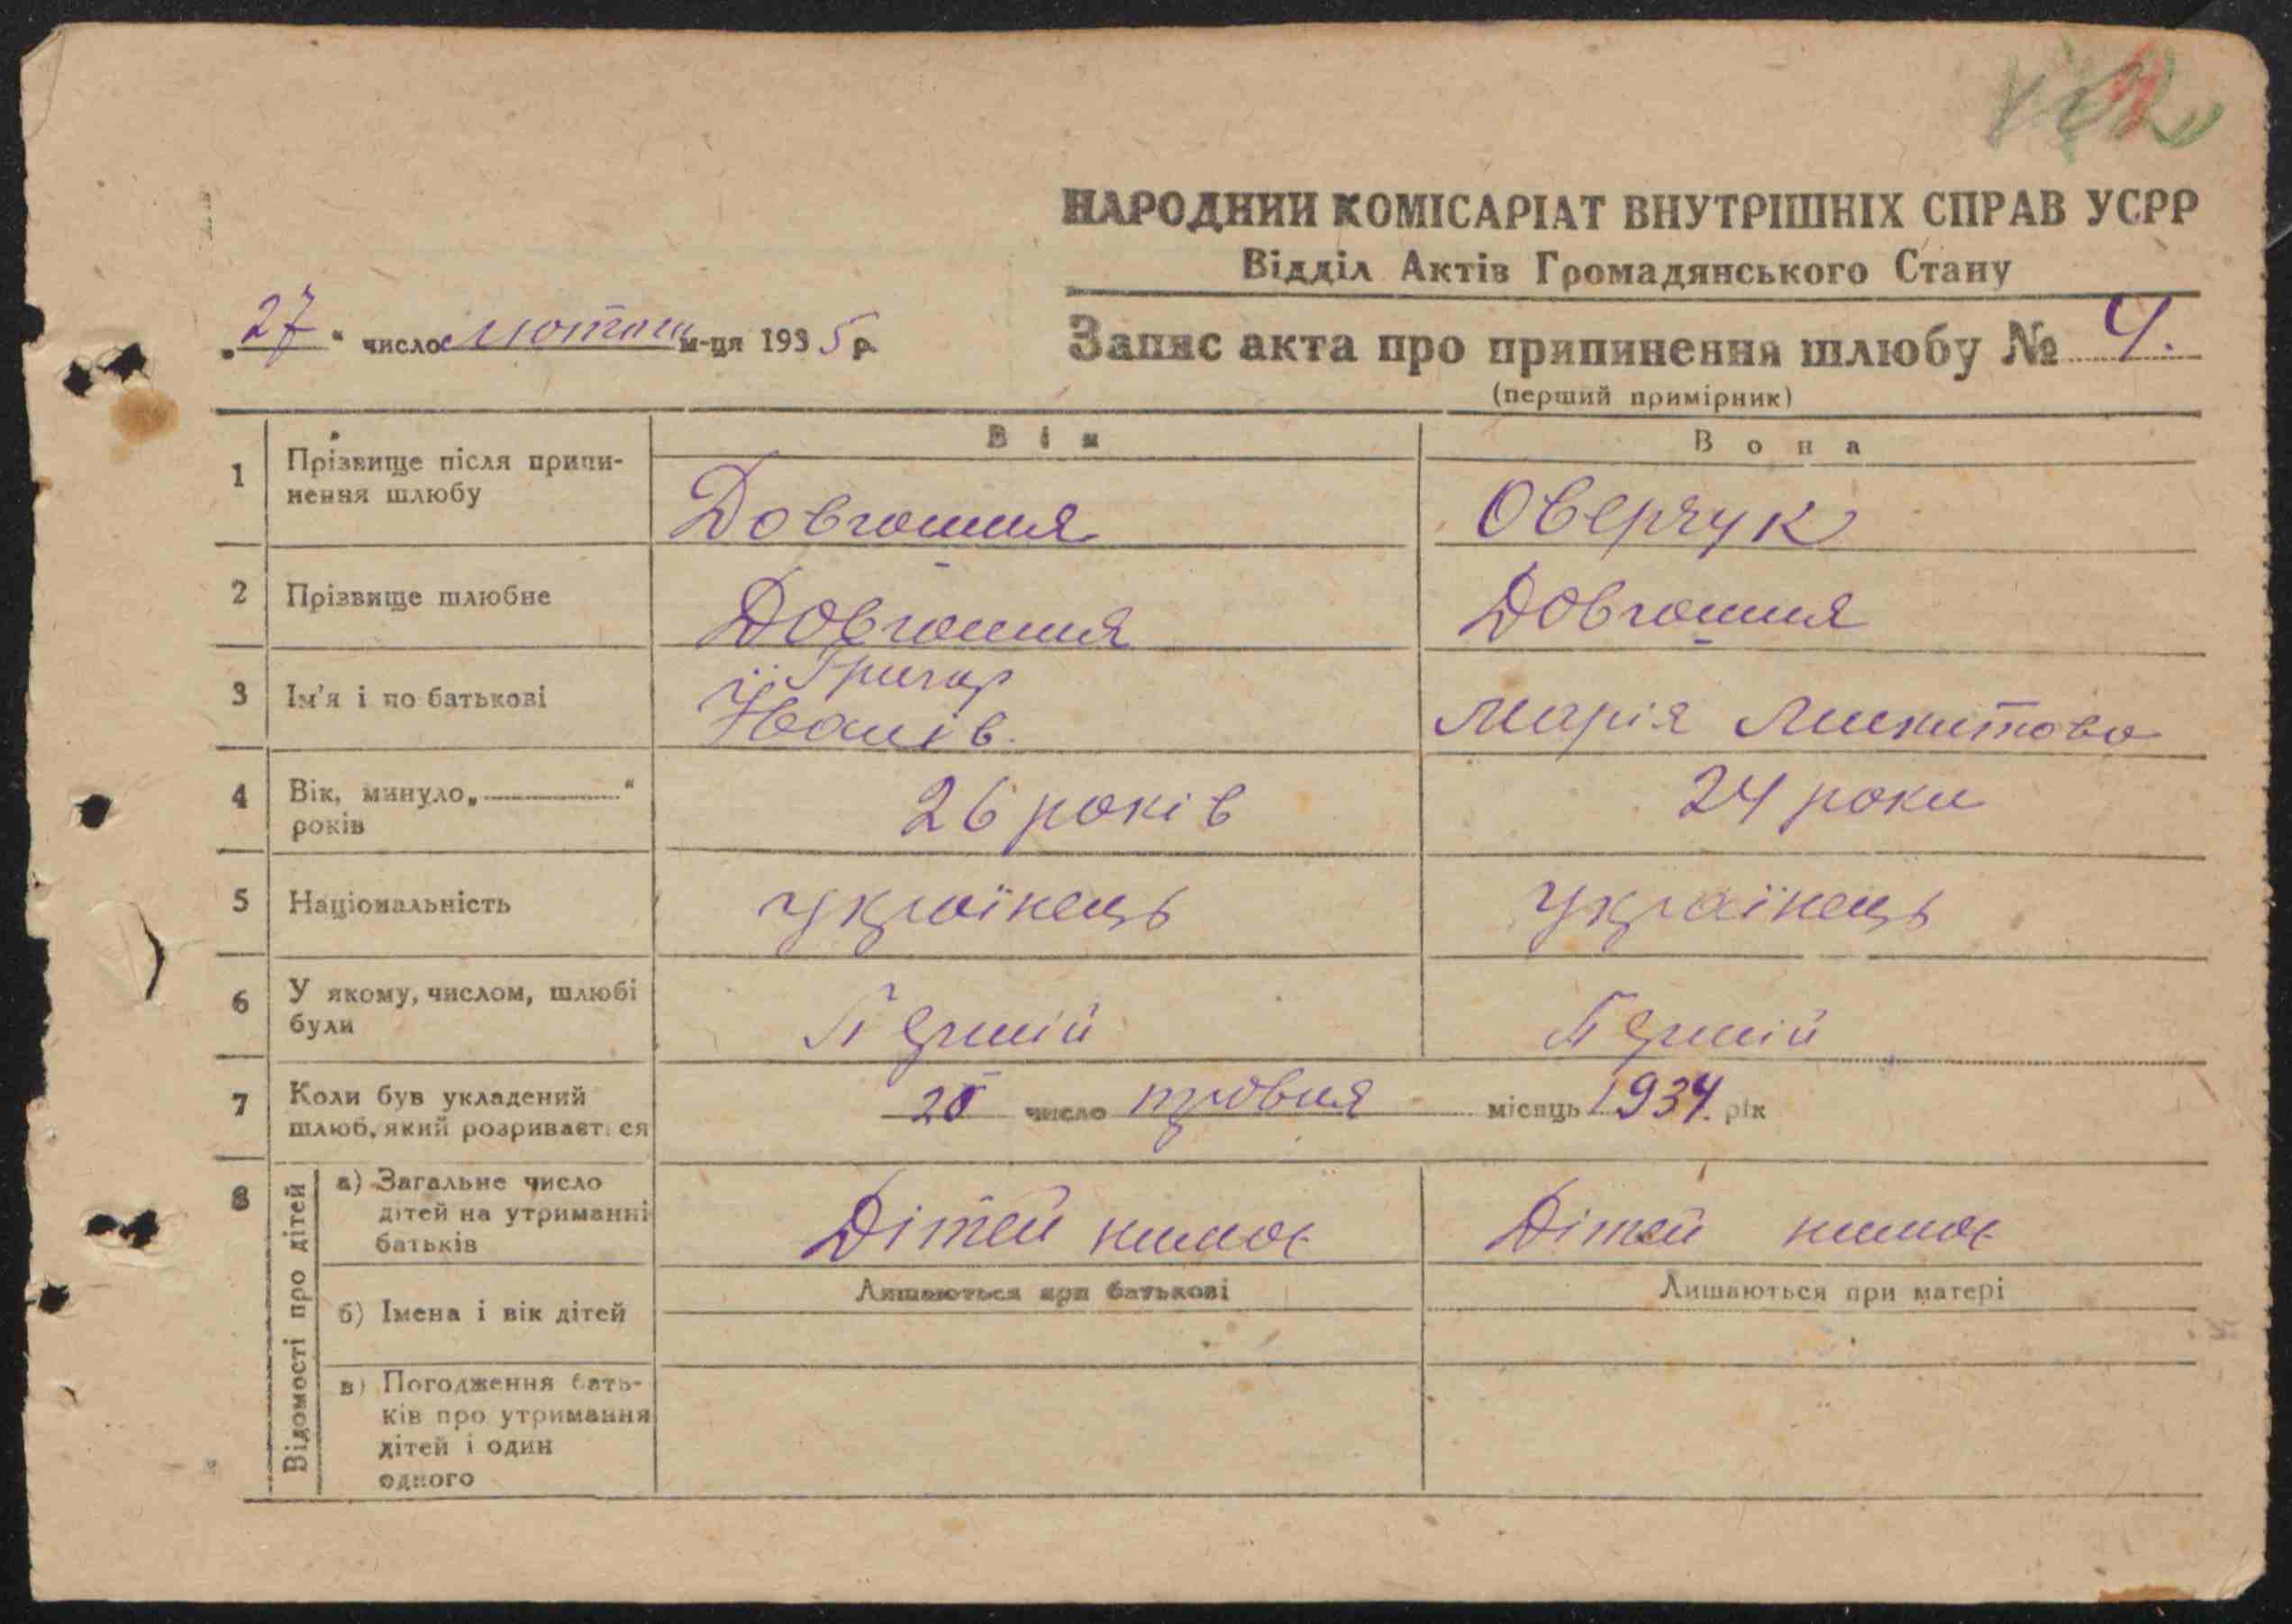 НАРОДНИЙ КОМІСАРІАТ ВНУТРІШНІХ СПРАВ УСРР
Відділ Актів Громадянського Стану
„27“ число лютого м-ця 1935 р.
Запис акта про припинення шлюбу № 4.
(перший примірник)
Він Вона
1 Прізвище після припи-
нення шлюбу
Довгошия Оверчук
2 Прізвище шлюбне Довгошия Довгошия
3 Ім'я і по батькові Григор
Іванів. Марія Микитова
4 Вік, минуло „ “
років
26 років 24 роки
5 Національність українець українець
6 У якому, числом, шлюбі
були
Першій Першій
7 Коли був укладений
шлюб, який розривається
число травня місяць 1934. рік
8 Відомості про дітей
а) Загальне число
дітей на утриманні
батьків
Дітей нимає Дітей нимає
Лишаються при батькові Лишаються при матері
б) Імена і вік дітей
в) Погодження бать-
ків про утримання
дітей і один
одного